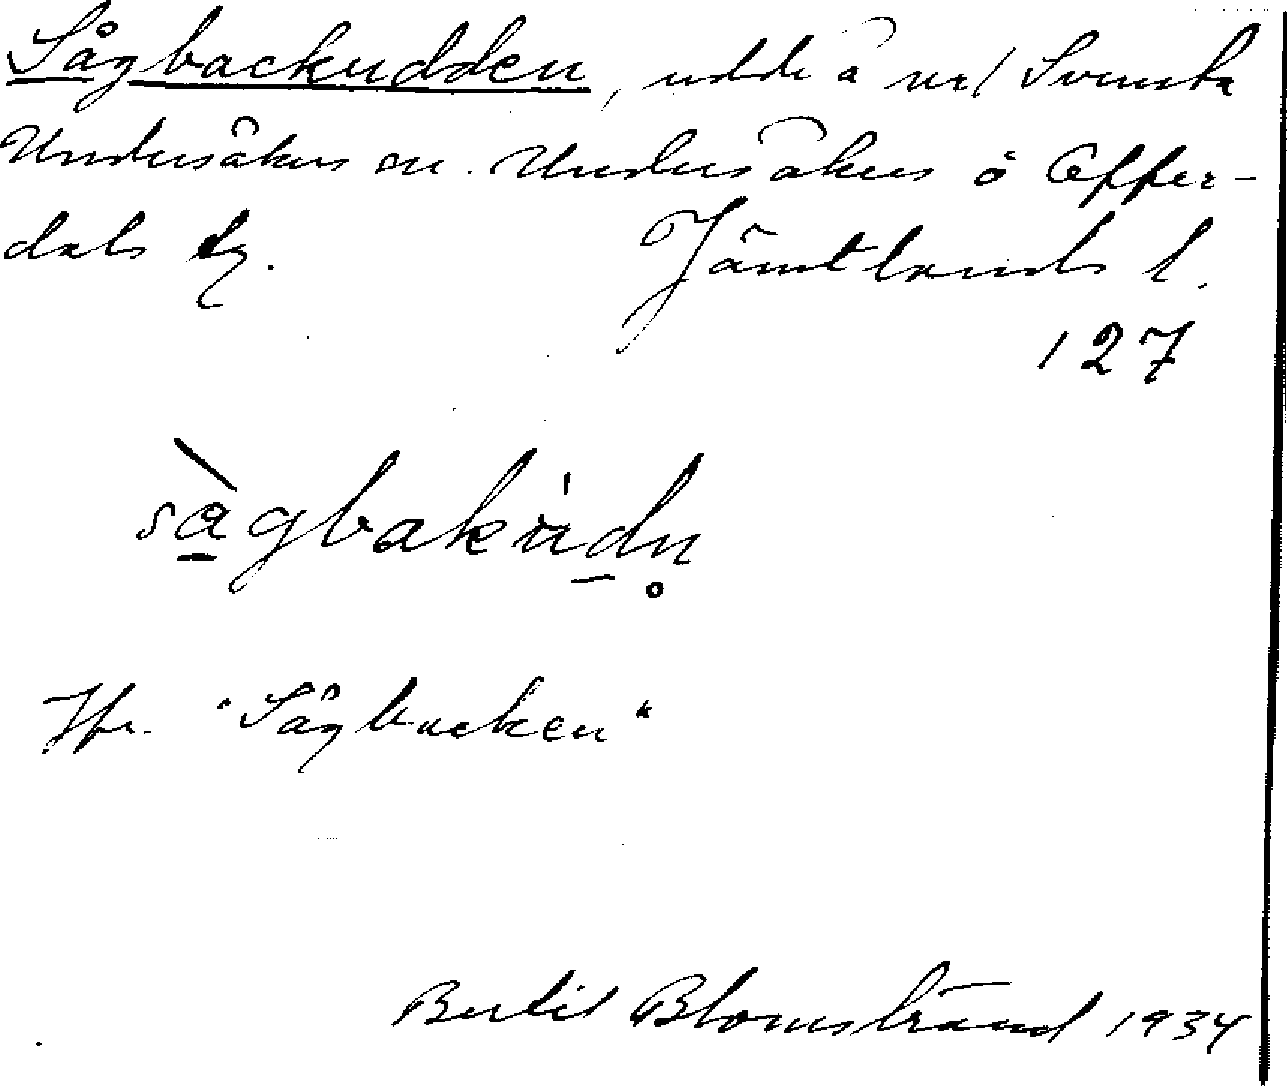 Sågbackudden, udde å nr 1 Svenska
Undersåkers sn. Undersåkers o Offer-
dals tg. Jämtlands l.
127
sågbakùdn̥
Jfr. "Sågbacken"
Bertil Blomstrand 1934